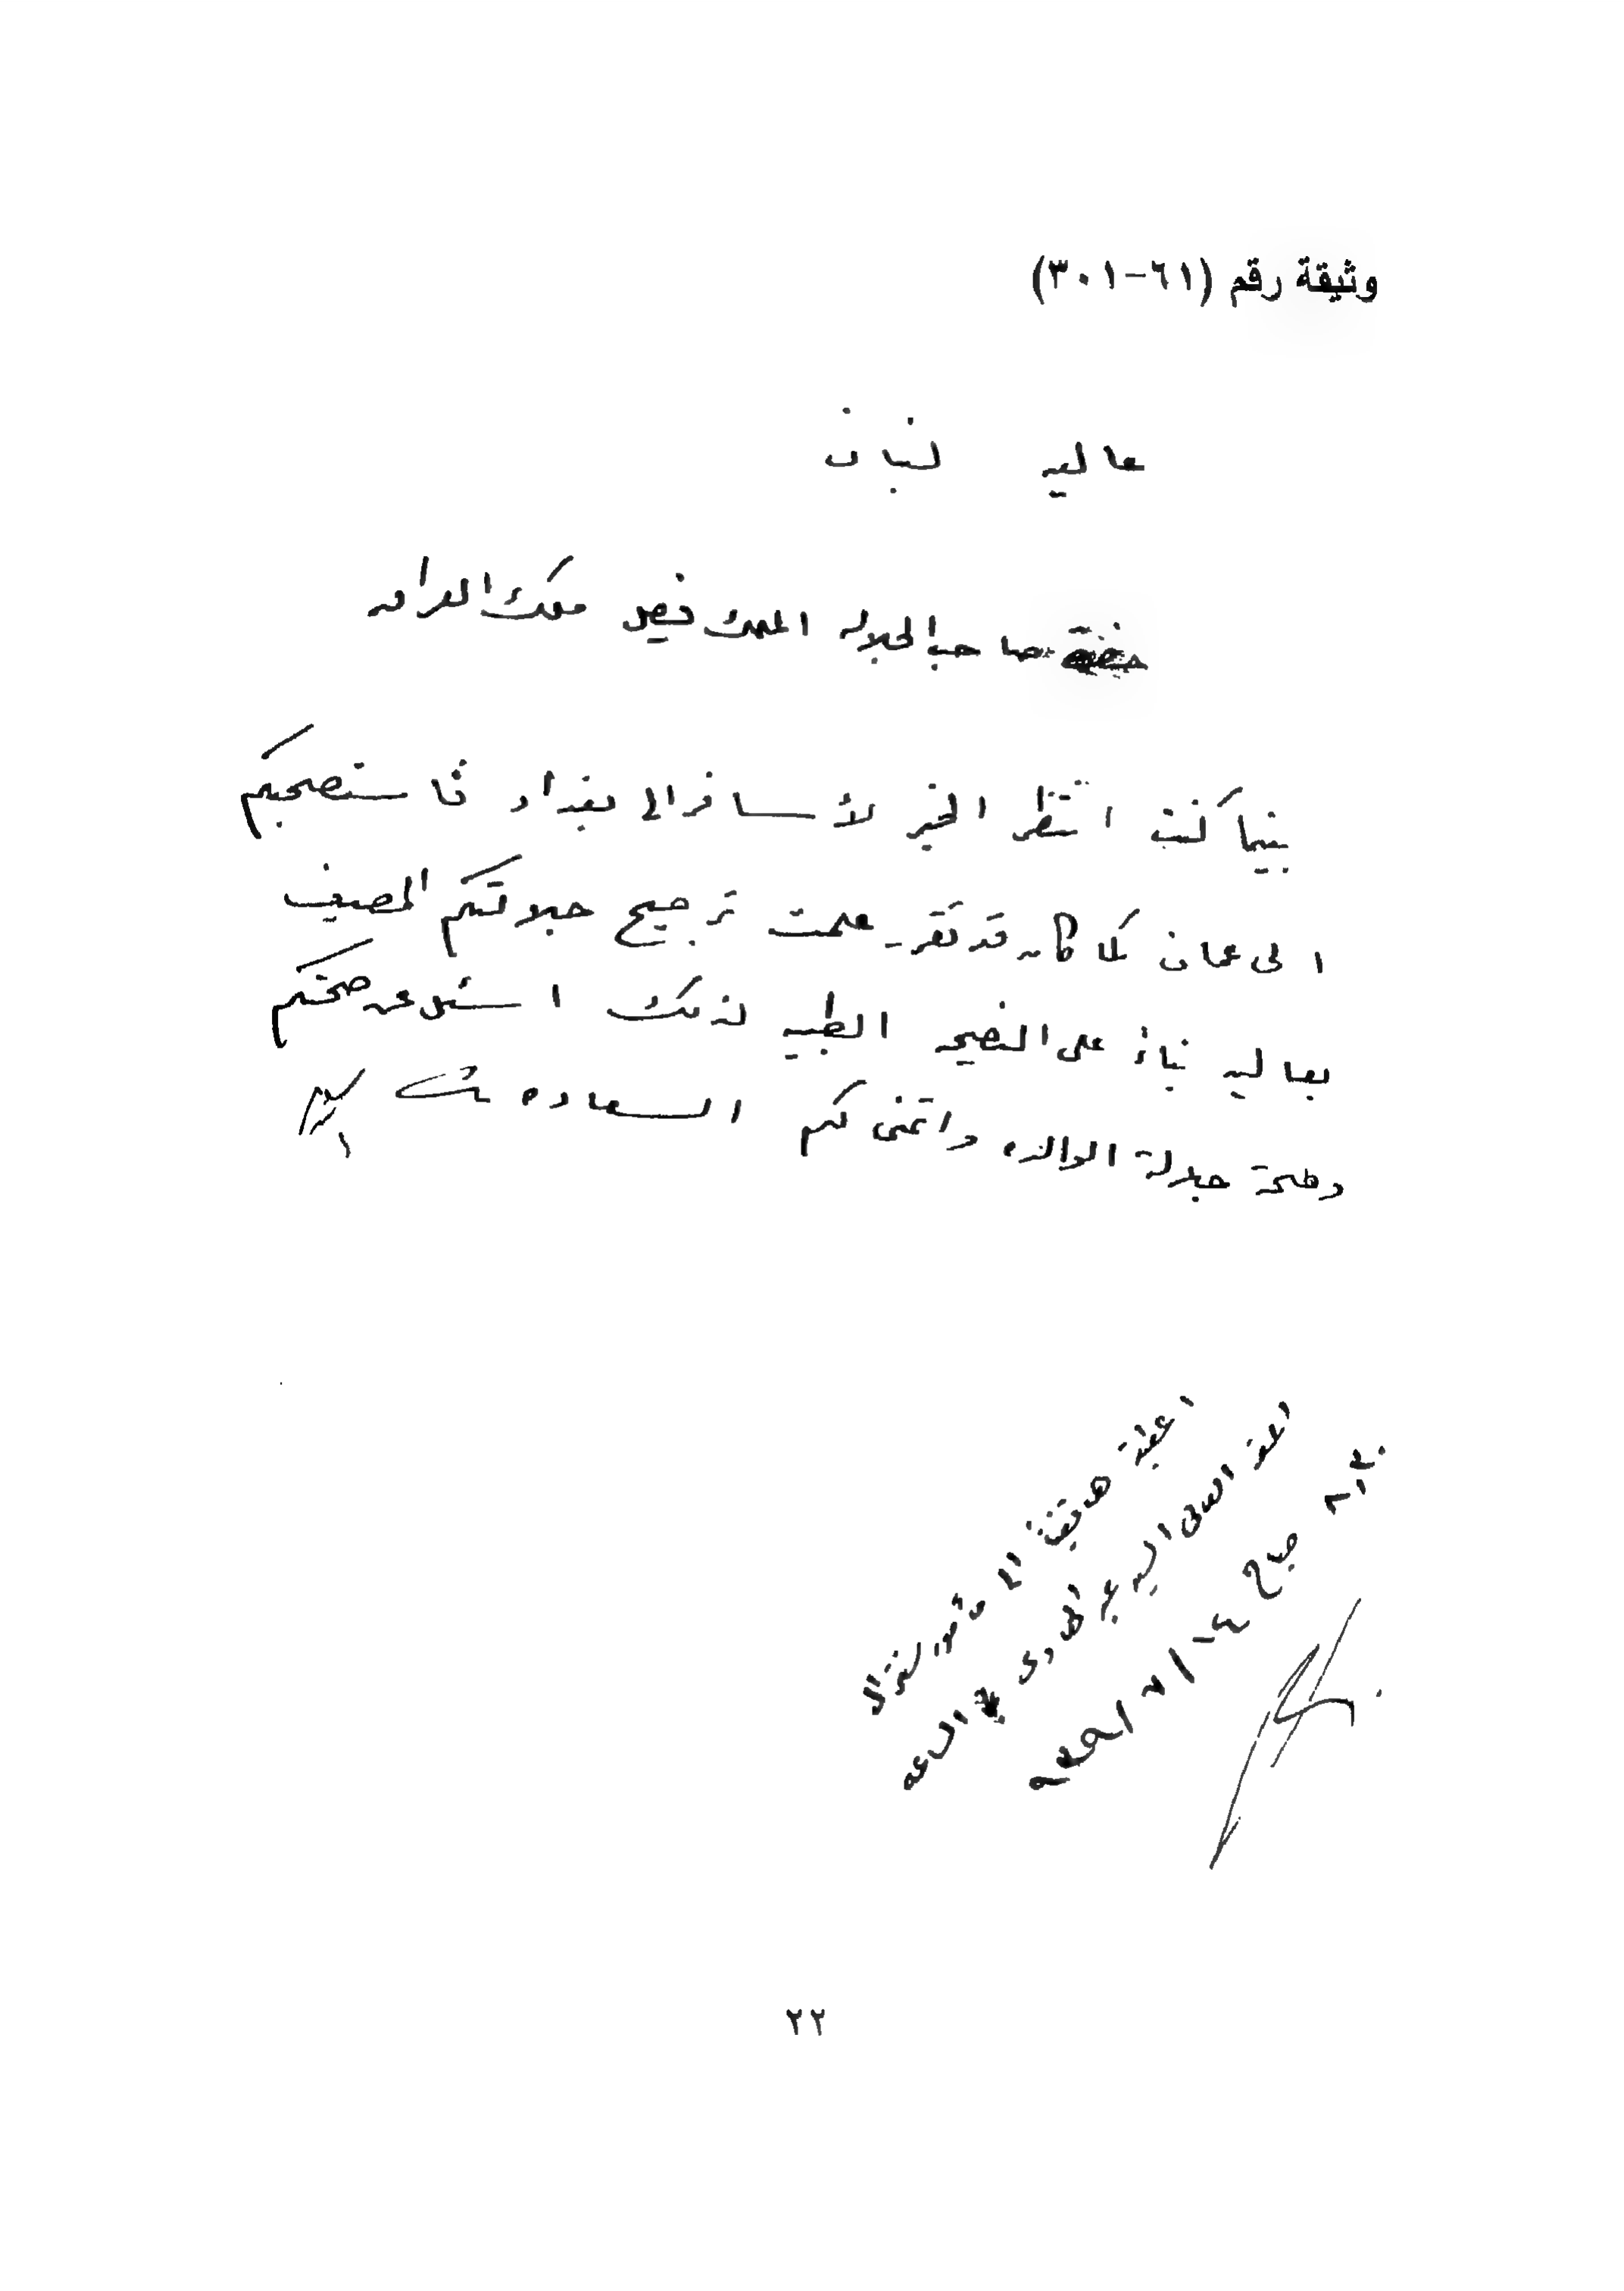 وثيقة رقم (٦١-٣٠١)
عاليه لبنان
صاحب الجلاله الملك فيصل ملك العراق
بينما كنت انتظر الخبر لأسافر الى بغداد فاستصحبكم
الى عمان كما كان قد تقرر علمت ترجيح جلالتكم المصيف
بعاليه بناءً على النصيحه الطبيه لذلك اسئل عن صحتكم
وصحة جلالة الوالده واتمنى لكم السعاده
اعطيت هتفياً الى مأمور سنترال
السيد عبد الهادي الساعه
٨,٣٠ صباح ١٤/٧/
٢٢